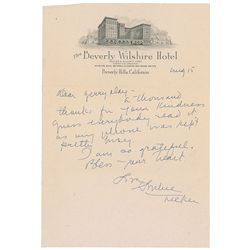 The Beverly Wilshire Hotel
Beverly Hills, California
Aug 15
Dear Jerry
a thousand
thanks for your kindness
guess everybody read it
as my phone was kept
pretty busy
I am so grateful.
Bless your heart
Love
Sophie
Tucker